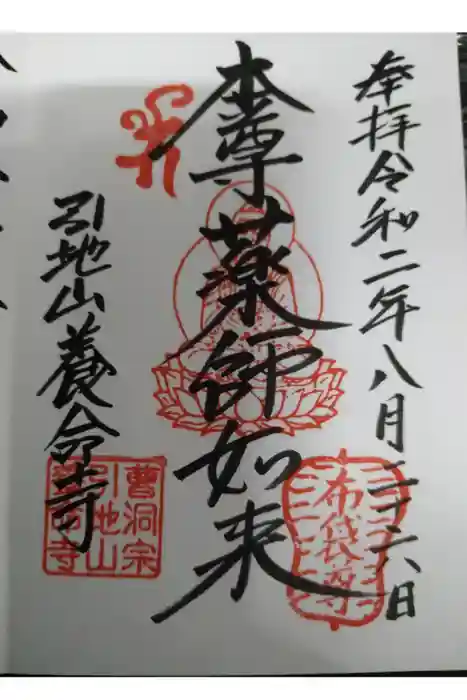 奉拝令和二年八月二十六日
本尊薬師如来
引地山養命寺
布袋尊
曹洞宗
引地山
養命寺